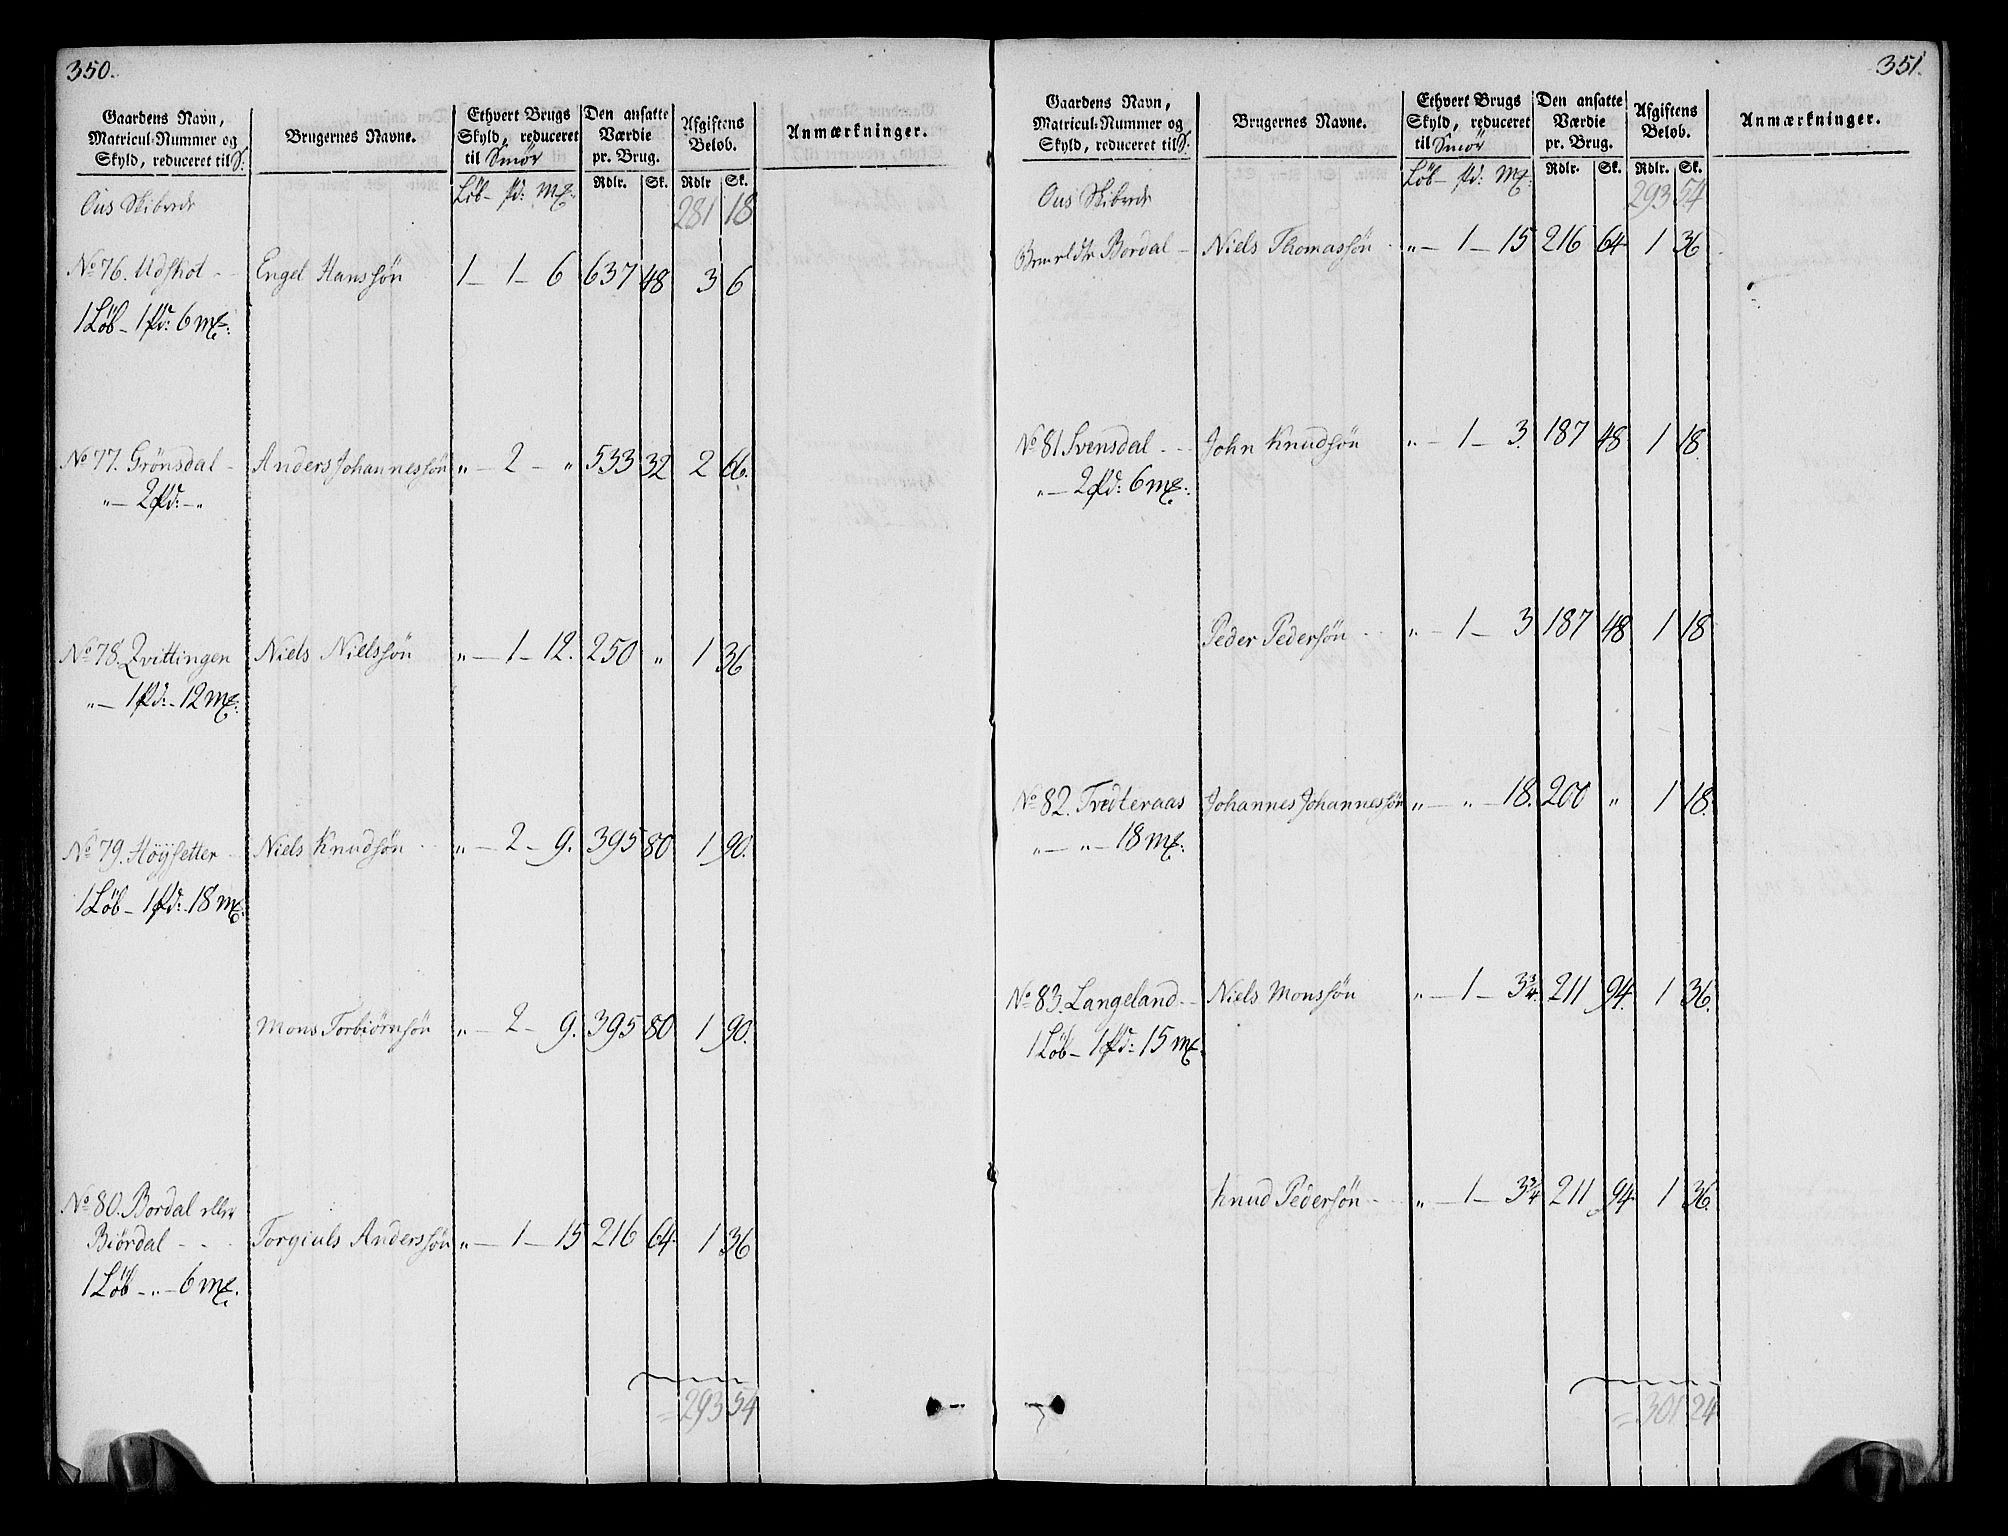 350.
Gaardens Navn, Matricul-Nummer og Skyld, reduceret til S. | Brugernes Navne. | Ethvert Brugs Skyld, reduceret til Smör | Den ansatte Værdie pr. Brug. | Afgiftens Beløb. | Anmærkninger.
Löb - pd: mk: | Rdlr. | Sk. | Rdlr | Sk.
Ous Skibrede 281 18
No 76. Udskot - - Engel Hanssön 1 - 1 - 6 637 48 3 6
1 Löb - 1 pd: 6 mk:
No 77. Grönsdal - Anders Johannessön „ - 2 - „ 533 32 2 66.
„ - 2 pd: - „
No 78. Qvittingen Niels Nielssön „ - 1 - 12. 250 „ 1 36
„ - 1 pd: - 12 mk:
No 79. Höysetter - Niels Knudsön - - „ - 2 - 9. 395 80 1 90.
1 Löb - 1 pd: - 18 mk:
Mons Torbiörnsön „ - 2 - 9. 395 80 1 90.
No 80. Bordal eller
Biördal - - - Torgiuls Anderssön „ - 1 - 15 216 64. 1 36
1 Löb - „ - 6 mk.
= 293 54
351.
Gaardens Navn, Matricul-Nummer og Skyld, reduceret til S. | Brugernes Navne. | Ethvert Brugs Skyld, reduceret til Smör | Den ansatte Værdie pr. Brug. | Afgiftens Beløb. | Anmærkninger.
Löb - pd: mk: | Rdlr. | Sk. | Rdlr. | Sk.
Ous Skibrede 293 54
Bordal - Niels Thomassön - „ - 1 - 15 216 64 1 36
No 81 Svensdal - - - John Knudsön „ - 1 - 3. 187 48 1 18.
„ - 2 pd: 6 mk:
Peder Pedersön - - „ - 1 - 3 187 48 1 18
No 82. Tvedteraas Johannes Johannessön „ - „ - 18. 200 „ 1 18.
„ - „ - 18 mk:
No 83. Langeland - - Niels Monssön „ - 1 - 3 3/4. 211 94. 1 36.
1 Löb - 1 pd: 15 mk:
Knud Pedersön - - „ - 1 - 3 3/4 211 94. 1 36.
= 301 24